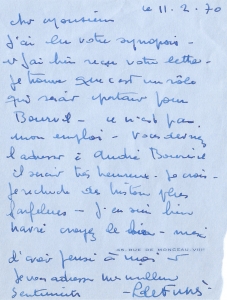 le 11. 2. 70
cher monsieur
J'ai lu votre synopsis -
et j'ai bien reçu votre lettre -
Je trouve que c'est un rôle
qui serait épatant pour
Bourvil - ce n'est pas
mon emploi - Vous devriez
l'adresser à André Bourvil
il serait très heureux - Je crois -
je recherche des histoires plus
farfelues - J'en suis bien
navré croyez le bien - merci
48, RUE DE MONCEAU-VIII
d'avoir pensé à moi -
Je vous adresse mes meilleurs
Sentiments -